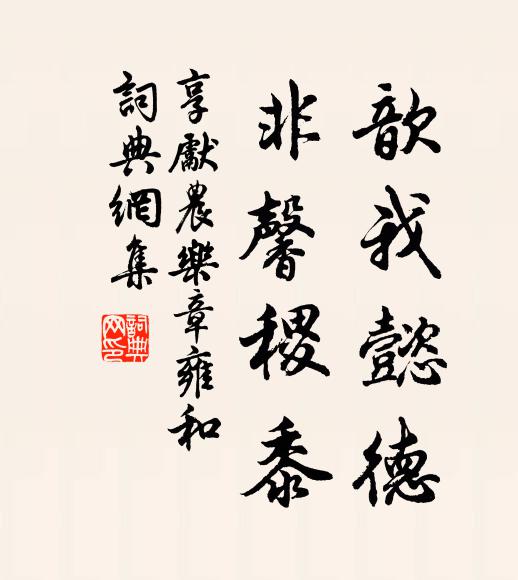 歆我懿德
非馨稷黍
享獻農樂章雍和
詞典網集
詞典
网印